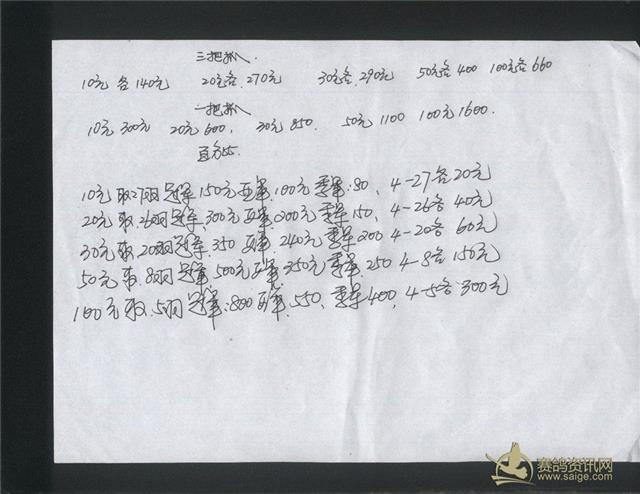 三把抓
10元各140元 20元各270元 30元各290元 50元各400 100元各660
一把抓
10元300元 20元600, 30元850. 50元1100 100元1600.
10元取27羽冠军150元亚军100元季军80, 4-27各20元
20元取26羽冠军300元亚军200元季军150, 4-26各40元
30元取20羽冠军350亚军240元季军200 4-20各60元
50元取8羽冠军500元亚军350元季军250 4-8各150元
100元取5羽冠军800亚军550, 季军400, 4-5各300元
赛鸽资讯网
www.saige.com